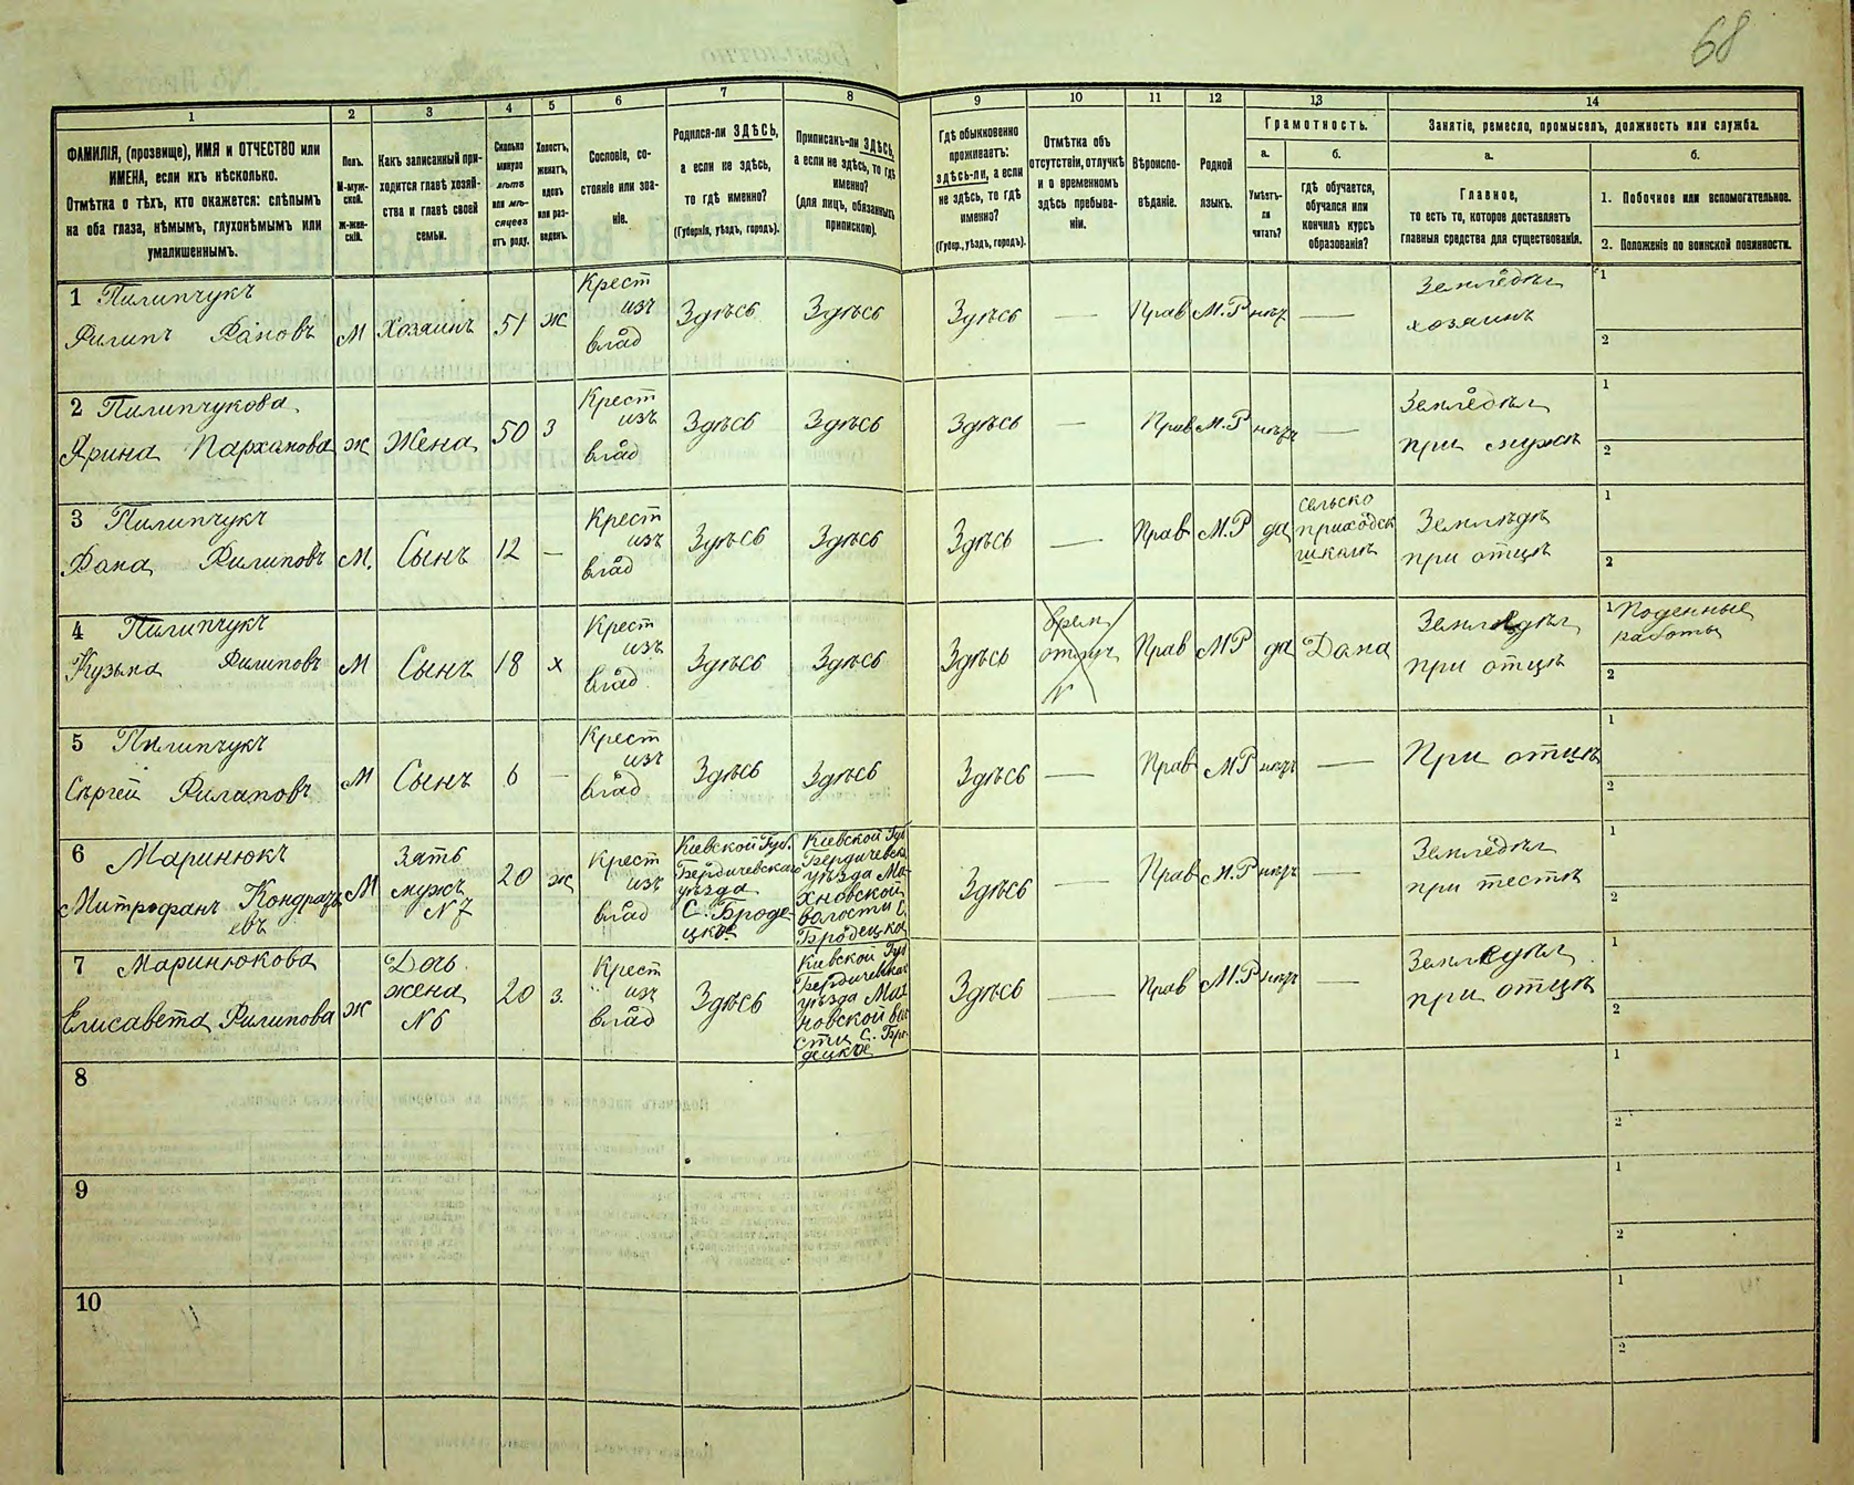 68
1
2
3
4
5
6
7
8
9
10
11
12
13
14
ФАМИЛІЯ, (прозвище), ИМЯ и ОТЧЕСТВО или
ИМЕНА, если ихъ нѣсколько.
Отмѣтка о тѣхъ, кто окажется: слѣпымъ
на оба глаза, нѣмымъ, глухонѣмымъ или
умалишеннымъ.
Полъ.
М-муж-
ской.
Ж-жен-
скій.
Какъ записанный при-
ходится главѣ хозяй-
ства и главѣ своей
семьи.
Сколько
минуло
лѣтъ
или мѣ-
сяцевъ
отъ роду.
Холостъ,
женатъ,
вдовъ
или раз-
веденъ.
Сословіе, со-
стояніе или зва-
ніе.
Родился-ли ЗДѢСЬ,
а если не здѣсь,
то гдѣ именно?
(Губернія, уѣздъ, городъ).
Приписанъ-ли ЗДѢСЬ,
а если не здѣсь, то гдѣ
именно?
(для лицъ, обязанныхъ
припискою).
Гдѣ обыкновенно
проживаетъ:
здѣсь-ли, а если
не здѣсь, то гдѣ
именно?
(Губер., уѣздъ, городъ).
Отмѣтка объ
отсутствіи, отлучкѣ
и о временномъ
здѣсь пребыва-
ніи.
Вѣроиспо-
вѣданіе.
Родной
языкъ.
Грамотность.
а.
Умѣетъ-
ли
читать?
б.
гдѣ обучается,
обучался или
кончилъ курсъ
образованія?
Занятіе, ремесло, промыселъ, должность или служба.
а.
Главное,
то есть то, которое доставляетъ
главныя средства для существованія.
б.
1. Побочное или вспомогательное.
2. Положеніе по воинской повинности.
1 Пилипчукъ
Филипъ Фановъ
М
Хозяинъ
51
ж
Крест
изъ
влад
Здѣсь
Здѣсь
Здѣсь
—
Прав
М.Р
нѣт
—
Землѣдѣл
хозяинъ
1
2
2 Пилипчукова
Ярина Пархамова
ж
Жена
50
З
Крест
изъ
влад
Здѣсь
Здѣсь
Здѣсь
—
Прав
М.Р
нѣтъ
—
Землѣдѣл
при мужѣ
1
2
3 Пилипчукъ
Фана Филиповъ
М.
Сынъ
12
—
Крест
изъ
влад
Здѣсь
Здѣсь
Здѣсь
—
Прав
М.Р
да
сельско
приходск
школѣ
Землѣдѣ
при отцѣ
1
2
4 Пилипчукъ
Кузьма Филиповъ
М
Сынъ
18
х
Крест
изъ
влад
Здѣсь
Здѣсь
Здѣсь
Прав
МР
да
Дома
Землѣдѣл
при отцѣ
1 Поденные
работы
2
5 Пилипчукъ
Сергей Филиповъ
М
Сынъ
6
—
Крест
изъ
влад
Здѣсь
Здѣсь
Здѣсь
—
Прав
МР
нѣтъ
—
При отцѣ
1
2
6 Маринюкъ
Митрофанъ Кондрать
евъ
М
Зять
мужъ
N 7
20
ж
Крест
изъ
влад
Кіевской Губ.
Бердичевскаго
уѣзда
С. Броде-
цкое
Кіевской Губ
Бердичевск
уѣзда Ма-
хновской
волости С.
Бродецка
Здѣсь
—
Прав
М.Р
нѣтъ
—
Землѣдѣл
при тестѣ
1
2
7 Маринюкова
Елисавета Филипова
ж
Дочь
жена
N 6
20
з.
Крест
изъ
влад
Здѣсь
Киевской Губ
Бердичевскаг
уѣзда Мах
новской вол
сти С. Бро-
децкое
Здѣсь
—
Прав
М.Р
нѣтъ
—
Землѣдѣл
при отцѣ
1
2
8
1
2
9
1
2
10
1
2